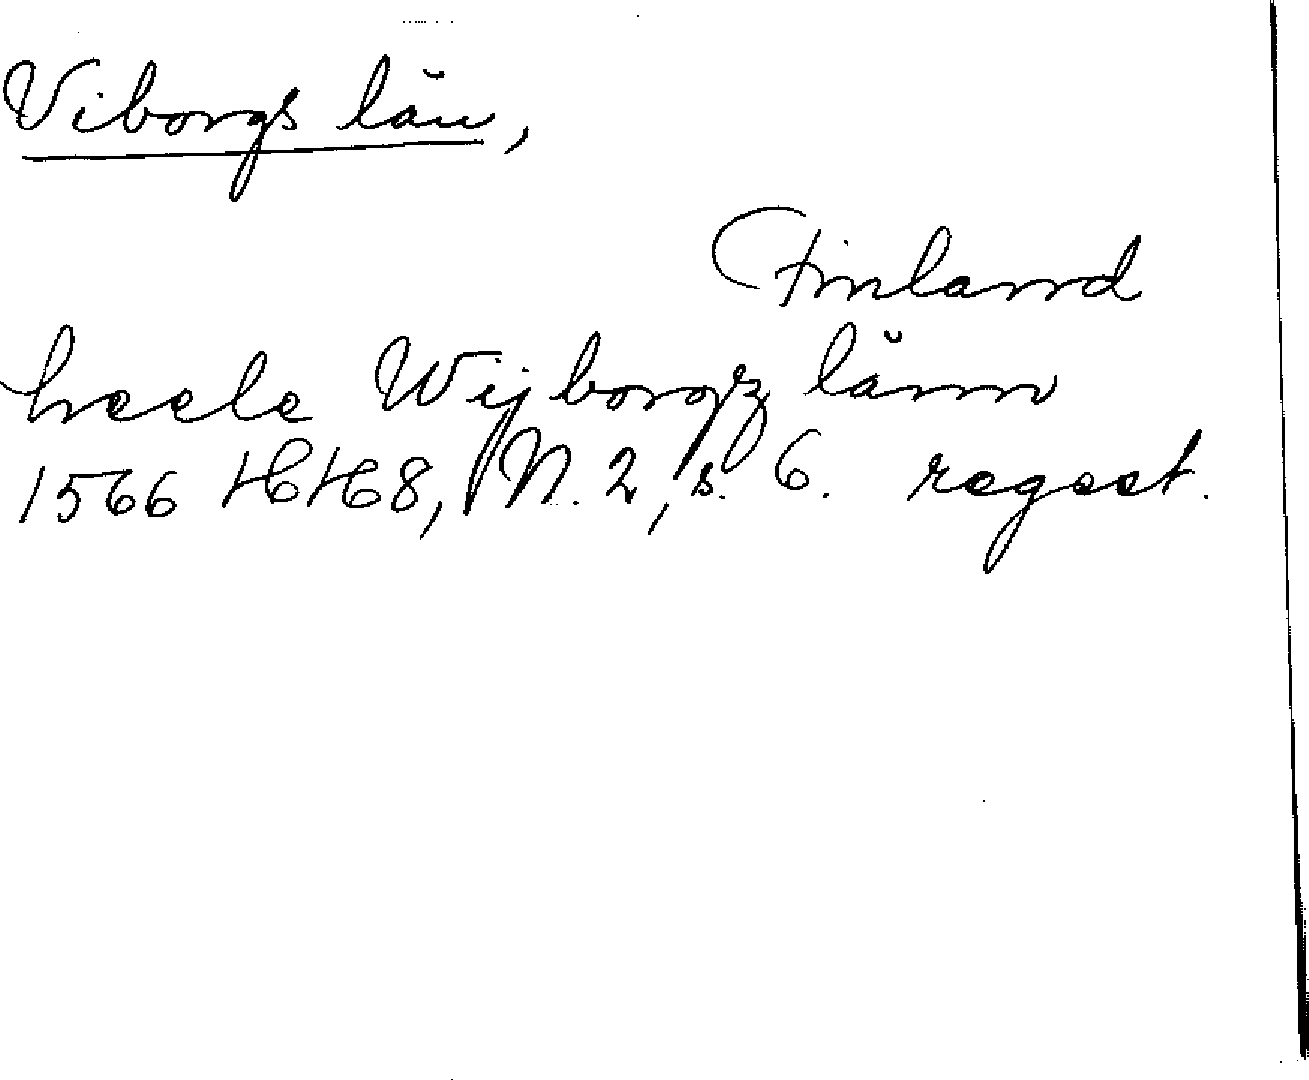 Viborgs län,
Finland
heele Wijborgz länn
1566 HH 8, N. 2, s. 6. regest.